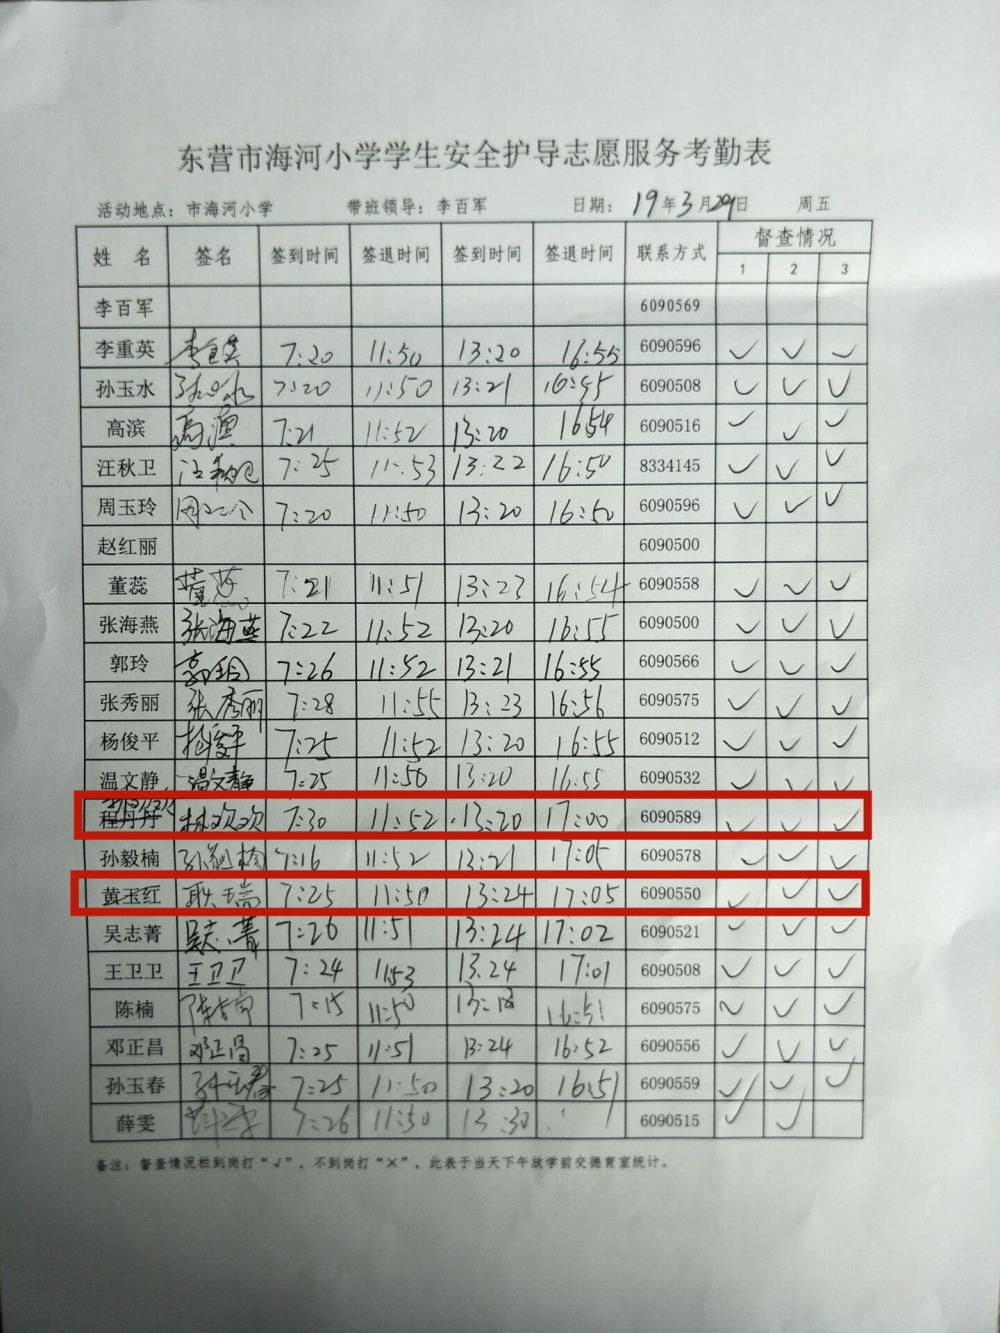 东营市海河小学学生安全护导志愿服务考勤表
活动地点：市海河小学 带班领导：李百军 日期：19年3月29日 周五
姓 名 签名 签到时间 签退时间 签到时间 签退时间 联系方式 督查情况
1 2 3
李百军 6090569
李重英 李重英 7:20 11:50 13:20 16:55 6090596 ✓ ✓ ✓
孙玉水 孙玉水 7:20 11:50 13:21 16:45 6090508 ✓ ✓ ✓
高滨 高滨 7:21 11:52 13:20 1654 6090516 ✓ ✓ ✓
汪秋卫 汪秋卫 7:25 11:53 13:22 16:50 8334145 ✓ ✓ ✓
周玉玲 周玉玲 7:20 11:50 13:20 16:50 6090596 ✓ ✓ ✓
赵红丽 6090500
董蕊 董蕊 7:21 11:51 13:23 16:54 6090558 ✓ ✓ ✓
张海燕 张海燕 7:22 11:52 13:20 16:55 6090500 ✓ ✓ ✓
郭玲 郭玲 7:26 11:52 13:21 16:55 6090566 ✓ ✓ ✓
张秀丽 张秀丽 7:28 11:55 13:23 16:56 6090575 ✓ ✓ ✓
杨俊平 杨俊平 7:25 11:52 13:20 16:55 6090512 ✓ ✓ ✓
温文静 温文静 7:25 11:50 13:20 16:55 6090532 ✓ ✓ ✓
林欢欢
程丹丹 林欢欢 7:30 11:52 13:20 17:00 6090589 ✓ ✓ ✓
孙毅楠 孙毅楠 7:16 11:52 13:21 17:05 6090578 ✓ ✓ ✓
黄玉红 耿瑞 7:25 11:50 13:24 17:05 6090550 ✓ ✓ ✓
吴志菁 吴志菁 7:26 11:51 13:24 17:02 6090521 ✓ ✓ ✓
王卫卫 王卫卫 7:24 1153 13.24 17:01 6090508 ✓ ✓ ✓
陈楠 陈楠 7:15 11:50 13:18 16:51 6090575 ✓ ✓ ✓
邓正昌 邓正昌 7:25 11:51 13:24 16:52 6090556 ✓ ✓ ✓
孙玉春 孙玉春 7:25 11:50 13:20 16:51 6090559 ✓ ✓ ✓
薛雯 薛雯 7:26 11:50 13:30 6090515 ✓ ✓
备注：督查情况栏到岗打“√”，不到岗打“×”，此表于当天下午放学前交德育室统计。